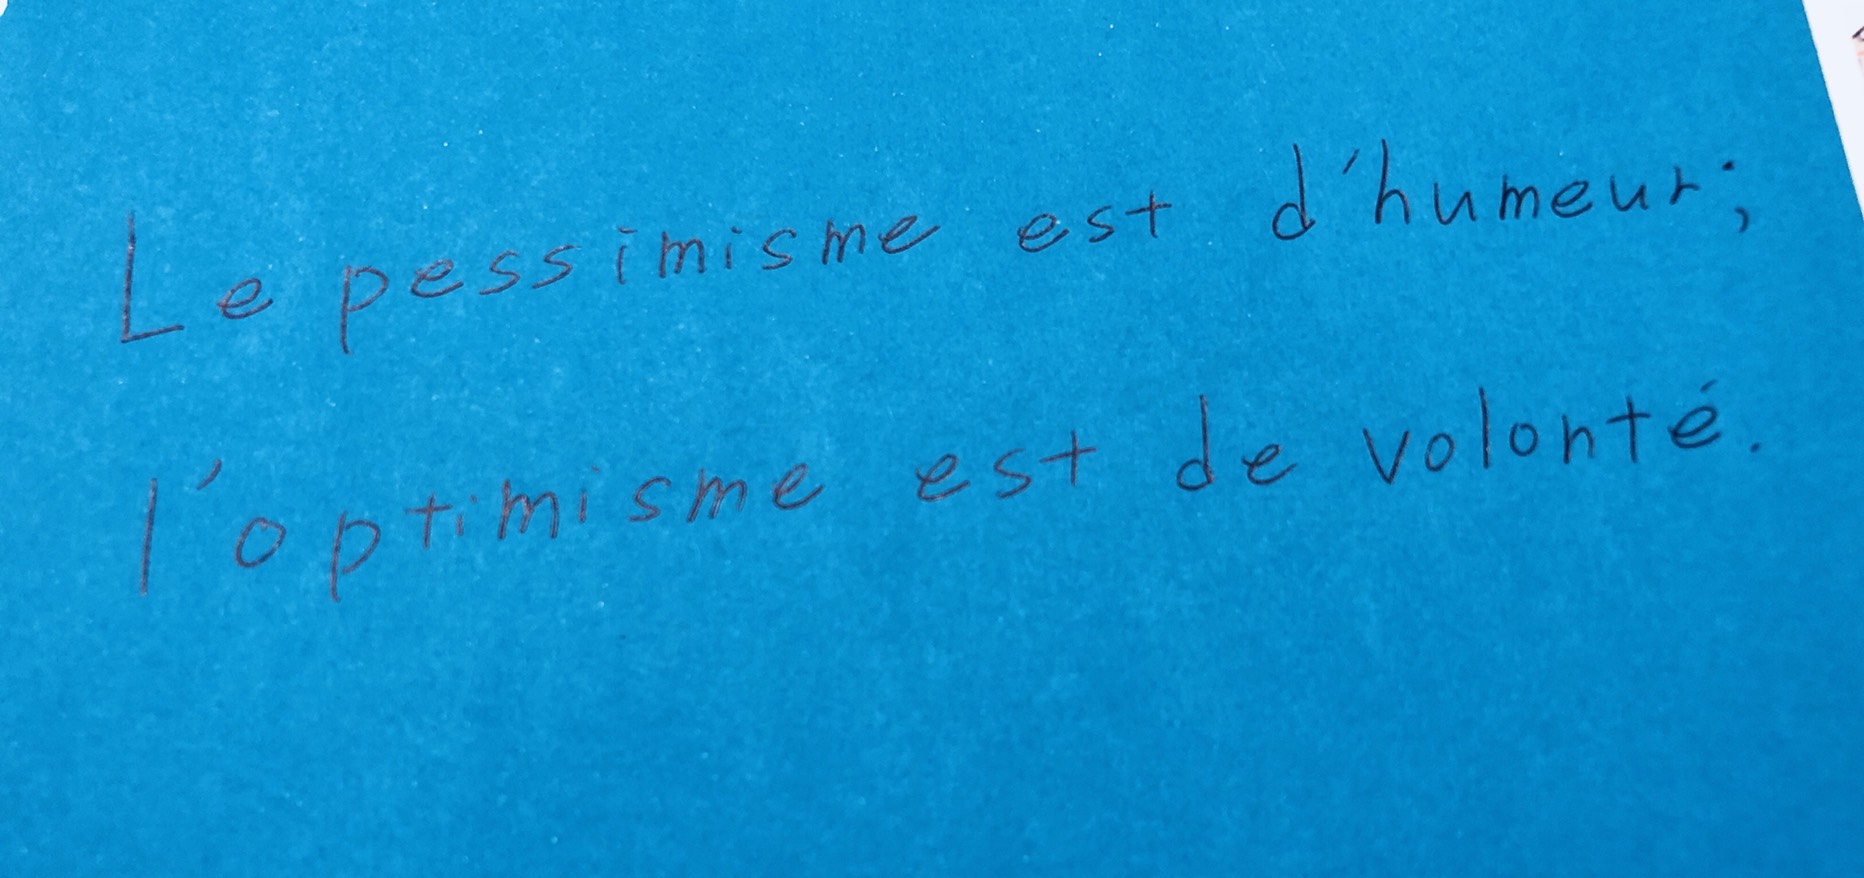 Le pessimisme est d'humeur;
l'optimisme est de volonté.